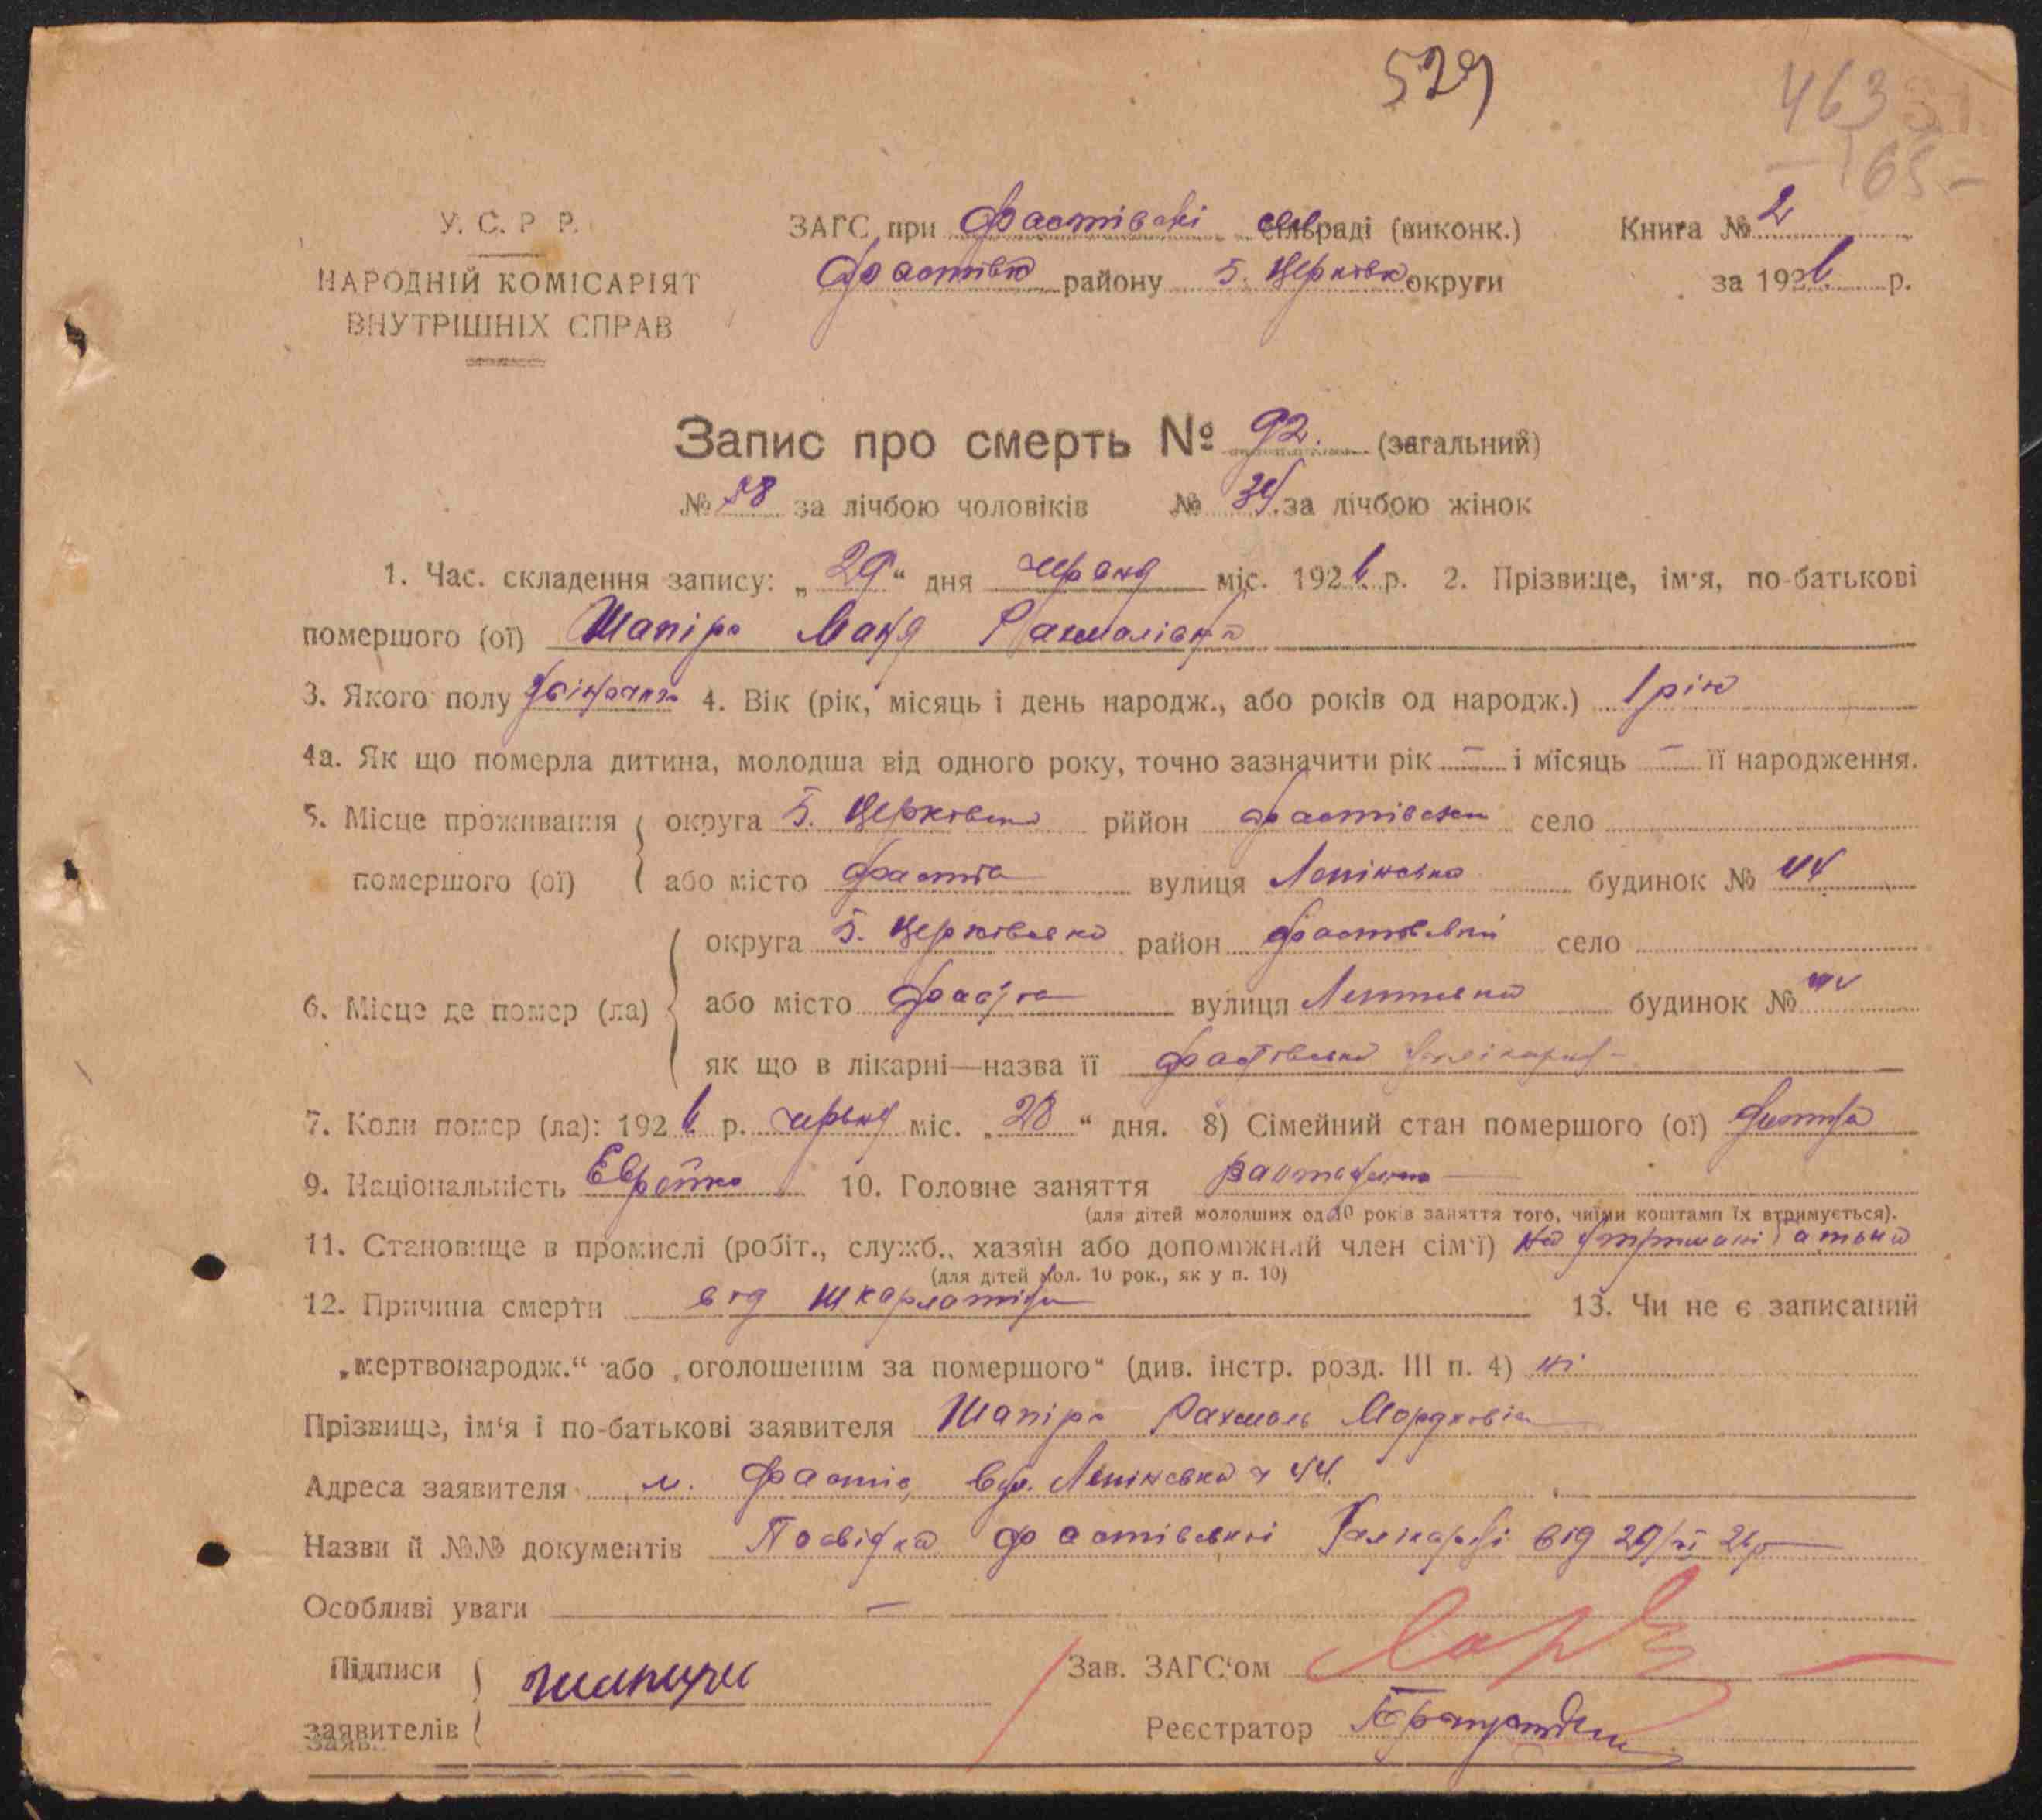 529
463
У. С. Р. Р.
ЗАГС при Фастівскі сільраді (виконк.)
Книга № 2
НАРОДНІЙ КОМІСАРІЯТ
району Б. Церковс округи
за 1926 р.
ВНУТРІШНІХ СПРАВ
Запис про смерть № 92. (загальний)
№ 58 за лічбою чоловіків № 34 за лічбою жінок
1. Час. складення запису: „29“ дня червня міс. 1926 р. 2. Прізвище, ім'я, по-батькові
помершого (ої) Шапіро Маня Рахмалівна
3. Якого полу жіночого 4. Вік (рік, місяць і день народж., або років од народж.) 1 рік
4а. Як що померла дитина, молодша від одного року, точно зазначити рік — і місяць — її народження.
5. Місце проживання округа Б. Церковська рййон Фастівский село
помершого (ої) або місто Фастів вулиця Ленінська будинок № 44
округа Б. Церковська район Фастівський село
6. Місце де помер (ла) або місто Фастів вулиця Ленінська будинок № 44
як що в лікарні—назва її Фастівська
7. Коли помер (ла): 1926 р. червня міс. „28“ дня. 8) Сімейний стан помершого (ої) дитина
9. Національність Еврейка 10. Головне заняття
(для дітей молодших од 10 років заняття того, чиїми коштами їх втримується).
11. Становище в промислі (робіт., служб., хазяїн або допоміжний член сім'ї) на утриманні батька
(для дітей мол. 10 рок., як у п. 10)
12. Причина смерти від шкарлатіни 13. Чи не є записаний
„мертвонародж.“ або „оголошеним за помершого“ (див. інстр. розд. III п. 4) ні
Прізвище, ім'я і по-батькові заявителя Шапіро Рахмаль Мордковіч
Адреса заявителя м. Фастів, вул. Ленінська ч 44.
Назви й №№ документів Посвідка Фастівської від 29/VI 26р
Особливі уваги —
Підписи
Зав. ЗАГС'ом
заявителів
Реєстратор
Заяв.